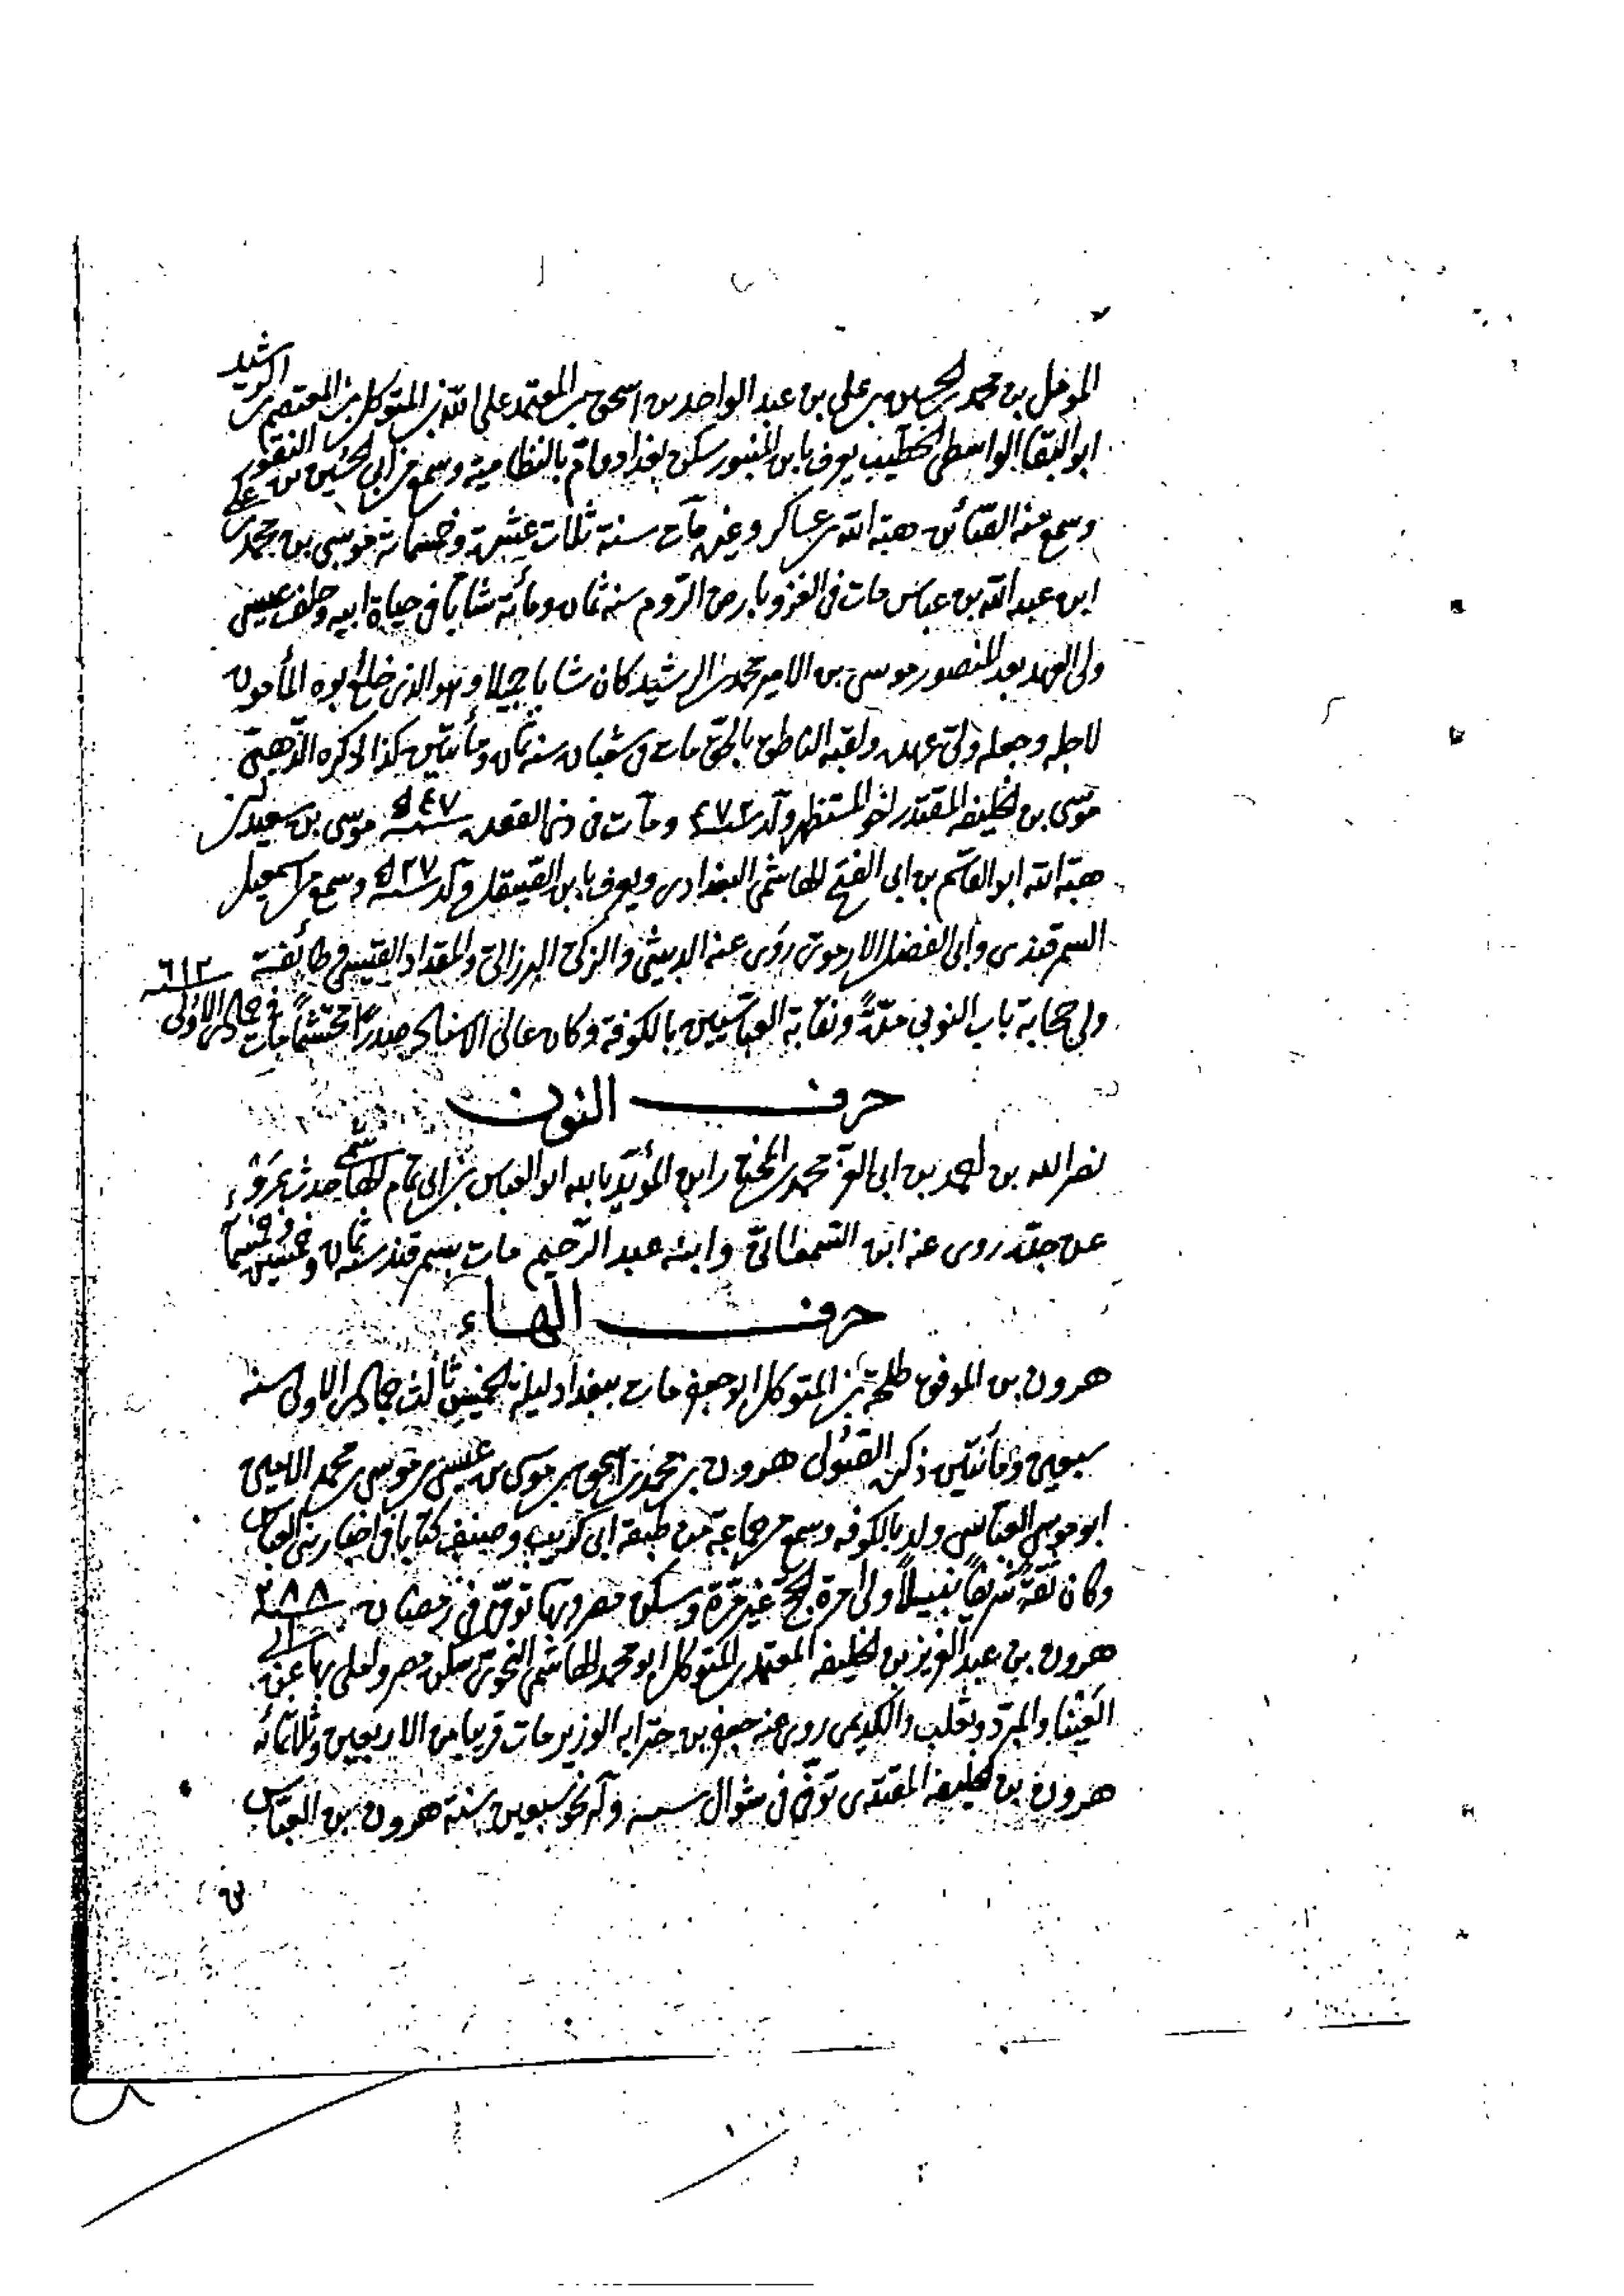 المؤمل بن محمد بن الحسين بن علي بن عبد الواحد بن اسحق بن المعتمد على الله بن المتوكل بن المعتصم بن الرشيد
ابو البقا الواسطي الخطيب يعرف بابن المنبور سكن بغداد وام بالنظامية وسمع من ابي الحسين بن النقور
وسمع منه الصائن هبة الله بن عساكر وغيره مات سنة ثلاث عشرة وخمسمائة موسى بن محمد بن علي
ابن عبد الله بن عباس مات في الغزو بارض الروم سنة ثمان ومائة شابا في حياة ابيه وخلف عيسى
ولي العهد بعد المنصور موسى بن الامير محمد بن الرشيد كان شابا جميلا وهو الذي خلع ابوه المأمون
لاجله وجعله ولي عهده ولقبه الناطق بالحق مات في شعبان سنة ثمان ومأتين كذا ذكره الذهبي
موسى بن الخليفة المقتدر اخو المستظهر ولد سنة ٤٧٢ ومات في ذي القعده سنة ٥٤٧ موسى بن سعيد بن
هبة الله ابو القاسم بن ابي الفتح الهاشمي البغدادي ويعرف بابن الصيقل ولد سنة ٥٢٧ وسمع من اسمعيل
السمرقندي وابي الفضل الارموي روى عنه الدبيثي والزكي البرزالي والمقداد القيسي وطائفة
ولي حجابة باب النوبي مدة ونقابة العباسيين بالكوفة وكان عالي الاسناد صدرا محتشما مات في جمادى الاولى سنة ٦١٢
حرف النون
نصر الله بن احمد بن ابي العز محمد بن المختار ابن المؤيد بالله ابو العباس بن ابي تمام الهاشمي حدث بجزوء
عن جده روى عنه ابن السمعاني وابنه عبد الرحيم مات بسمرقند سنة ثمان وخمسين وخمسمائة
حرف الهاء
هرون بن الموفق طلحة بن المتوكل ابو جعفر مات ببغداد ليلة الخميس ثالث جمادى الاولى سنة
سبعين ومأتين ذكره الصولي هرون بن محمد بن اسحق بن موسى بن عيسى بن موسى بن محمد الامير
ابو موسى العباسي ولد بالكوفه وسمع من جماعة من طبقة ابي كريب وصنف كتابا في اخبار بني العباس
وكان ثقة شريفا نبيلا ولي امرة الحج غير مرة وسكن مصر وبها توفي في رمضان سنة ٢٨٨
هرون بن عبد العزيز بن الخليفه المعتمد بن المتوكل ابو محمد الهاشمي النحوي سكن مصر واملى بها عن ابي
العينا والمبرد وثعلب والكديمي روى عنه جعفر بن حنزابه الوزير مات قريبا من الاربعين وثلاثمائه
هرون بن الخليفه المقتدى توفي في شوال سنة وله نحو سبعين سنة هرون بن العباس